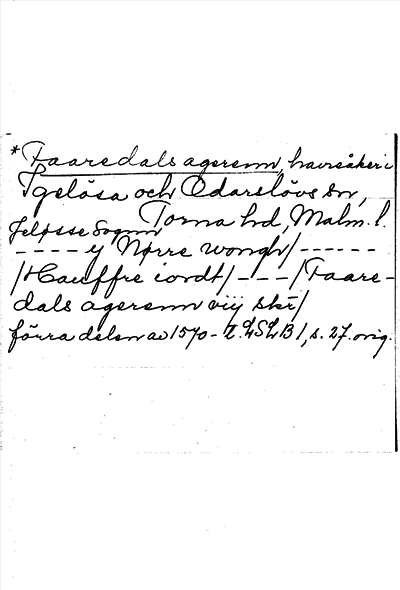 *Faaredals agerenn, havreåker i
Igelösa och Odarslövs sn,
Jeløsse Sognn Torna hd, Malm. l.
---- y Nørre wongh/------
/Hauffre iordt/---/Faare-
dals agerenn viij skr/
förra delen av 1570-t. LSLB 1, s. 27. orig.